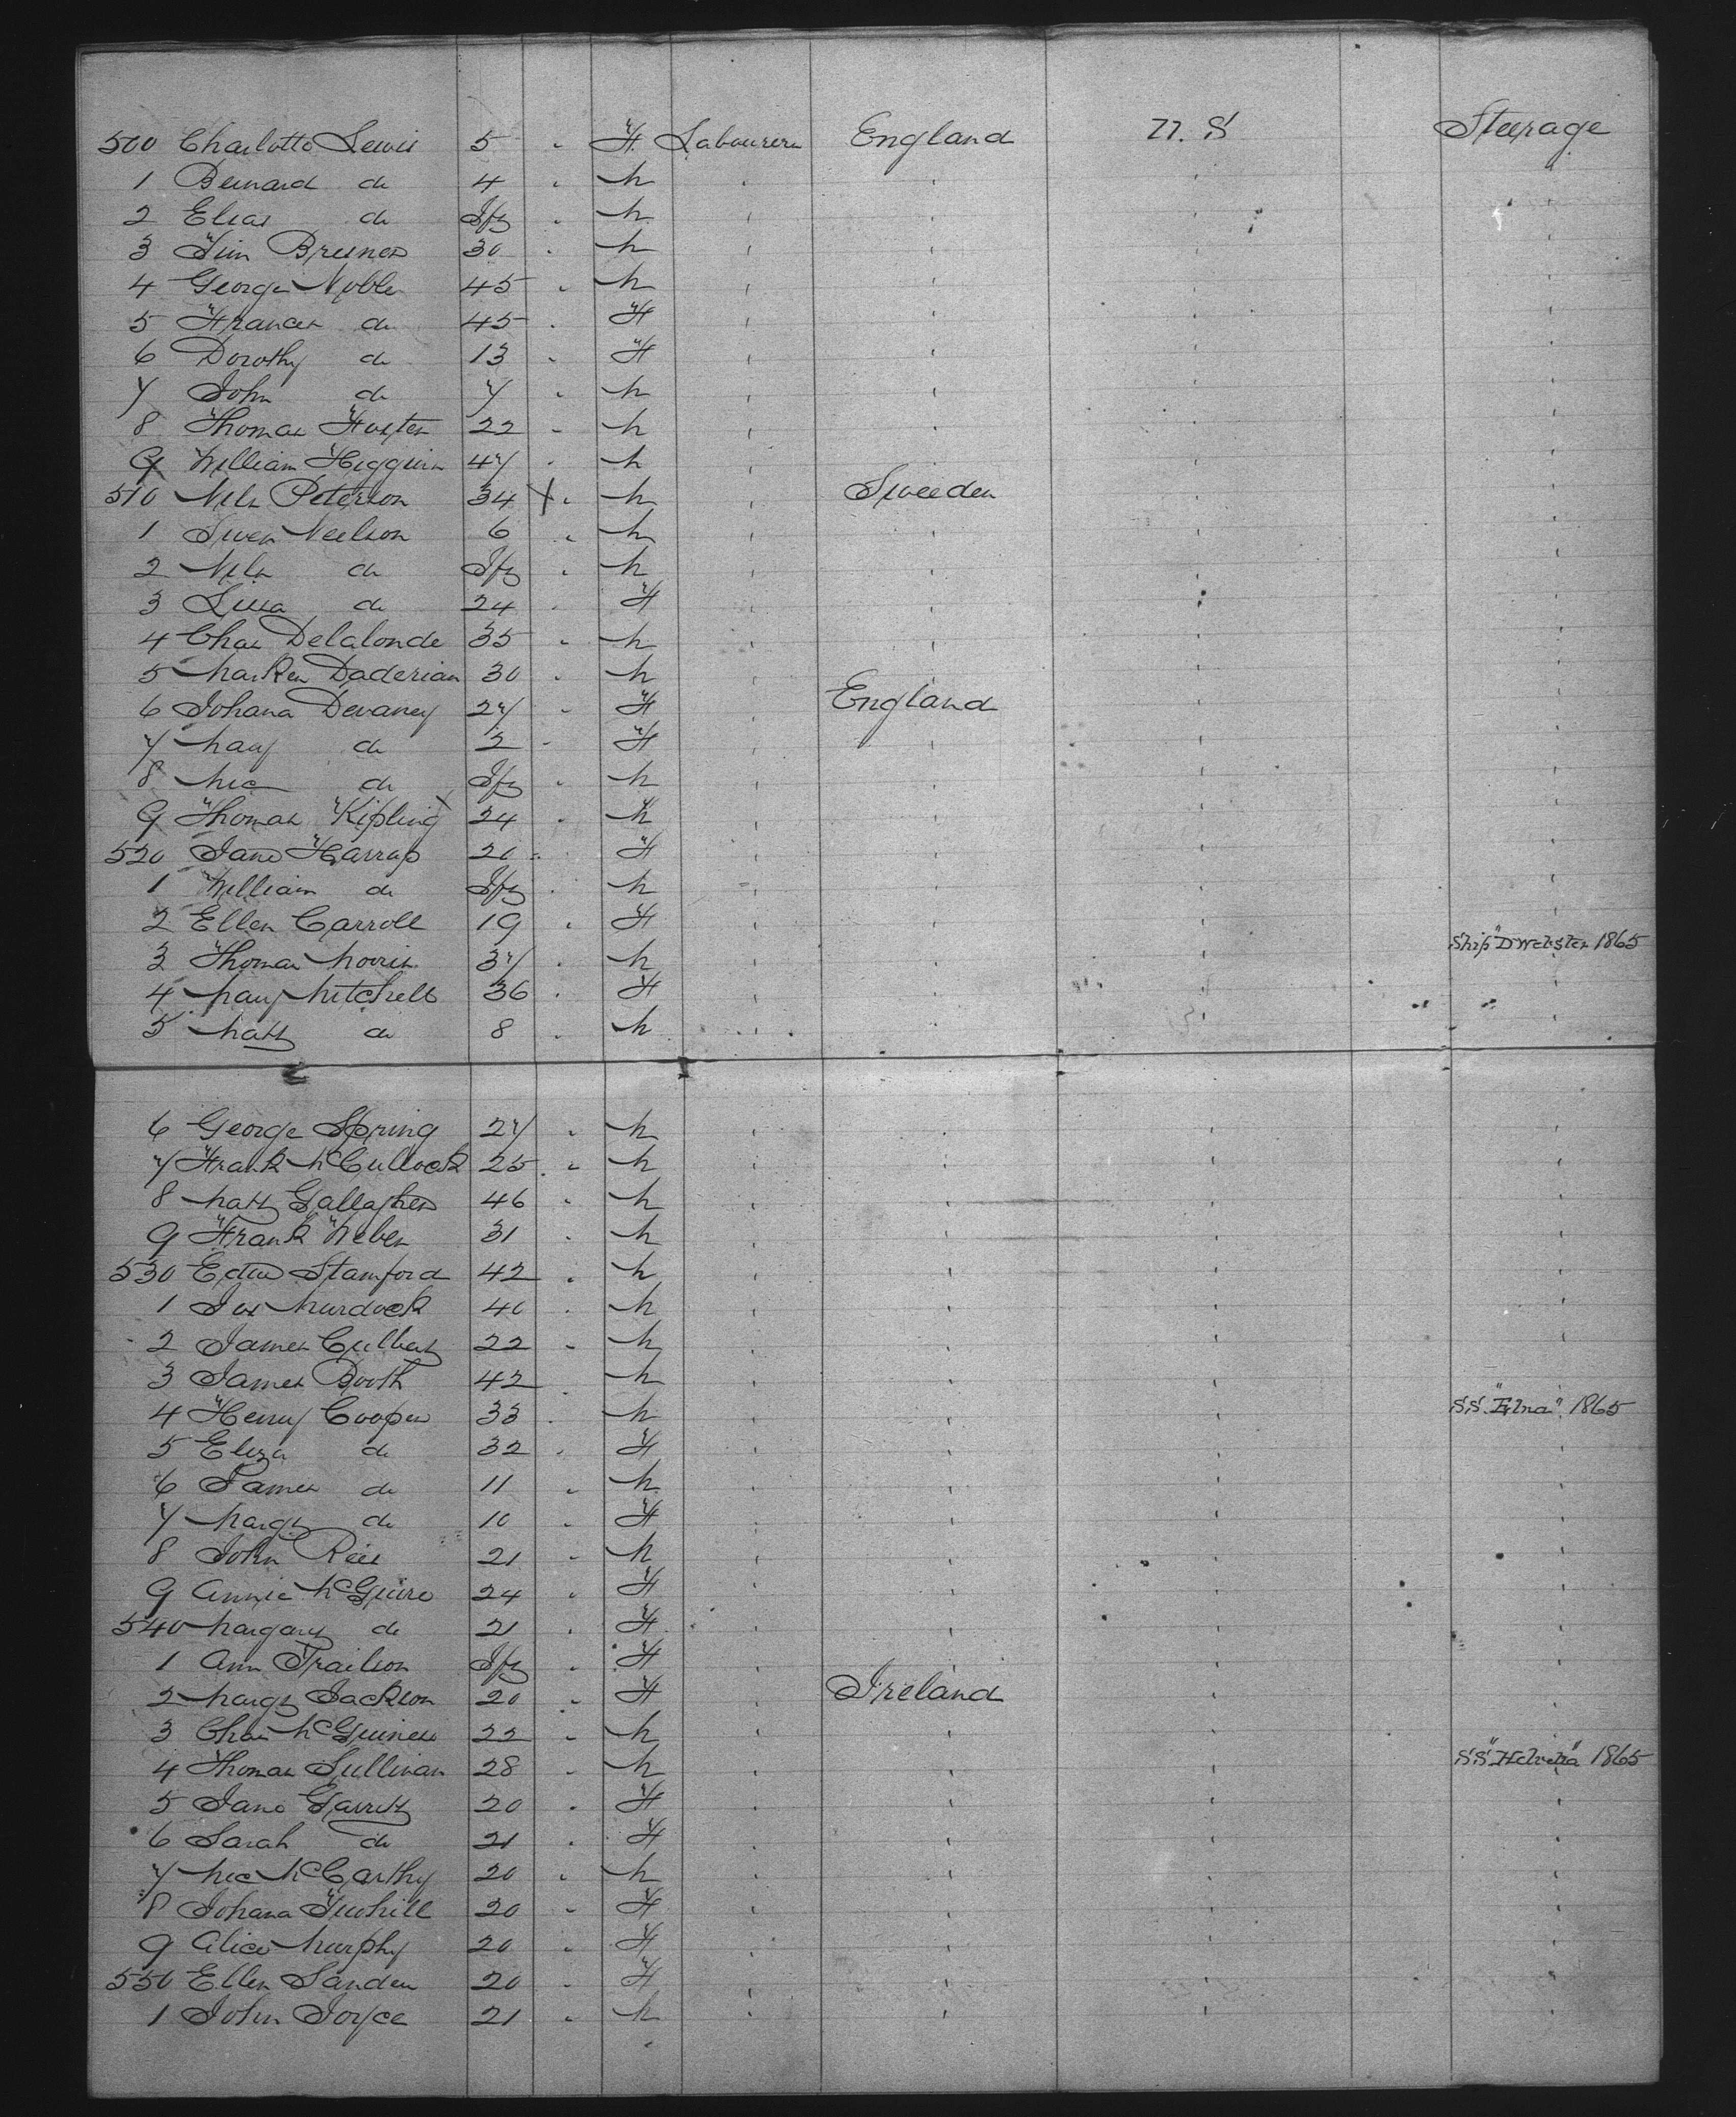 500 Charlotte Lewis 5 " F Labourers England U.S Steerage
1 Bernard do 4 " M " " " "
2 Elias do Inft " M " " " "
3 Jim 30 " M " " " "
4 George Noble 45 " M " " " "
5 Frances do 45 " F " " " "
6 Dorothy do 13 " F " " " "
7 John do 7 " M " " " "
8 Thomas 22 " M " " " "
9 William Higgins 47 " M " " " "
510 Nels Peterson 34 X " M " Sweeden " "
1 Swen Neelson 6 " M " " " "
2 Nels do Inft " M " " " "
3 do 24 " F " " " "
4 Chas Delalonde 35 " M " " " "
5 Daderian 30 " M " " " "
6 Johana Devaney 27 " F " England " "
7 Mary do 2 " F " " " "
8 Mic do Inft " M " " " "
9 Thomas Kipling 24 " M " " " "
520 Jane Harrap 20 " F " " " "
1 William do Inft " M " " " "
2 Ellen Carroll 19 " F " " " "
3 Thomas Morris 37 " M " " " Ship "D Webster 1865
4 Mary Mitchell 36 " F " " " "
5 Matt do 8 " M " " " "
6 George Spring 27 " M " " " "
7 Frank McCullock 25 " M " " " "
8 Matt Gallagher 46 " M " " " "
9 Frank Weber 31 " M " " " "
530 Edw Stamford 42 " M " " " "
1 Jos Murdock 40 " M " " " "
2 James Culbert 22 " M " " " "
3 James Booth 42 " M " " " "
4 Henry Cooper 33 " M " " " S.S. "Etna" 1865
5 Eliza do 32 " F " " " "
6 James do 11 " M " " " "
7 Margt do 10 " F " " " "
8 John Rees 21 " M " " " "
9 Annie McGuire 24 " F " " " "
540 Margary do 21 " F " " " "
1 Ann Trailson Inft " F " " " "
2 Margt Jackson 20 " F " Ireland " "
3 Chas McGuiness 22 " M " " " "
4 Thomas Sullivan 28 " M " " " S.S. "Helvetia" 1865
5 Jane Garrett 20 " F " " " "
6 Sarah do 21 " F " " " "
7 Mic McCarthy 20 " M " " " "
8 Johana Twohill 20 " F " " " "
9 Alice Murphy 20 " F " " " "
550 Ellen Sanden 20 " F " " " "
1 John Joyce 21 " M " " " "